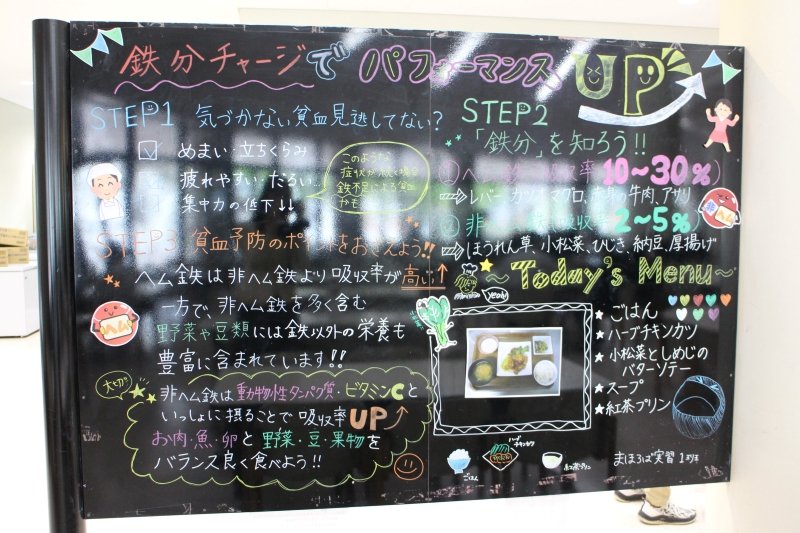 鉄分チャージで パフォーマンス UP
STEP1 気づかない貧血見逃してない?
めまい・立ちくらみ
疲れやすい・だるい…
集中力の低下↓↓
このような
症状が続く場合
鉄不足による貧血
かも
STEP2
「鉄分」を知ろう!!
10~30%)
レバー、カツオ、マグロ、赤身の牛肉、アサリ
2~5%)
ほうれん草、小松菜、ひじき、納豆、厚揚げ
STEP3 貧血予防のポイントをおさえよう!!
ヘム鉄は非ヘム鉄より吸収率が高い↑
一方で、非ヘム鉄を多く含む
野菜や豆類には鉄以外の栄養も
豊富に含まれています!!
ヘム
非
大切
非ヘム鉄は動物性タンパク質・ビタミンCと
いっしょに摂ることで吸収率UP
お肉・魚・卵と野菜・豆・果物を
バランス良く食べよう!!
~Today's Menu~
yeah!
★ごはん
★ハーブチキンカツ
★小松菜としめじの
バターソテー
★スープ
★紅茶プリン
ごはん
ハーブ
チキンカツ
紅茶プリン
まほろば実習1班